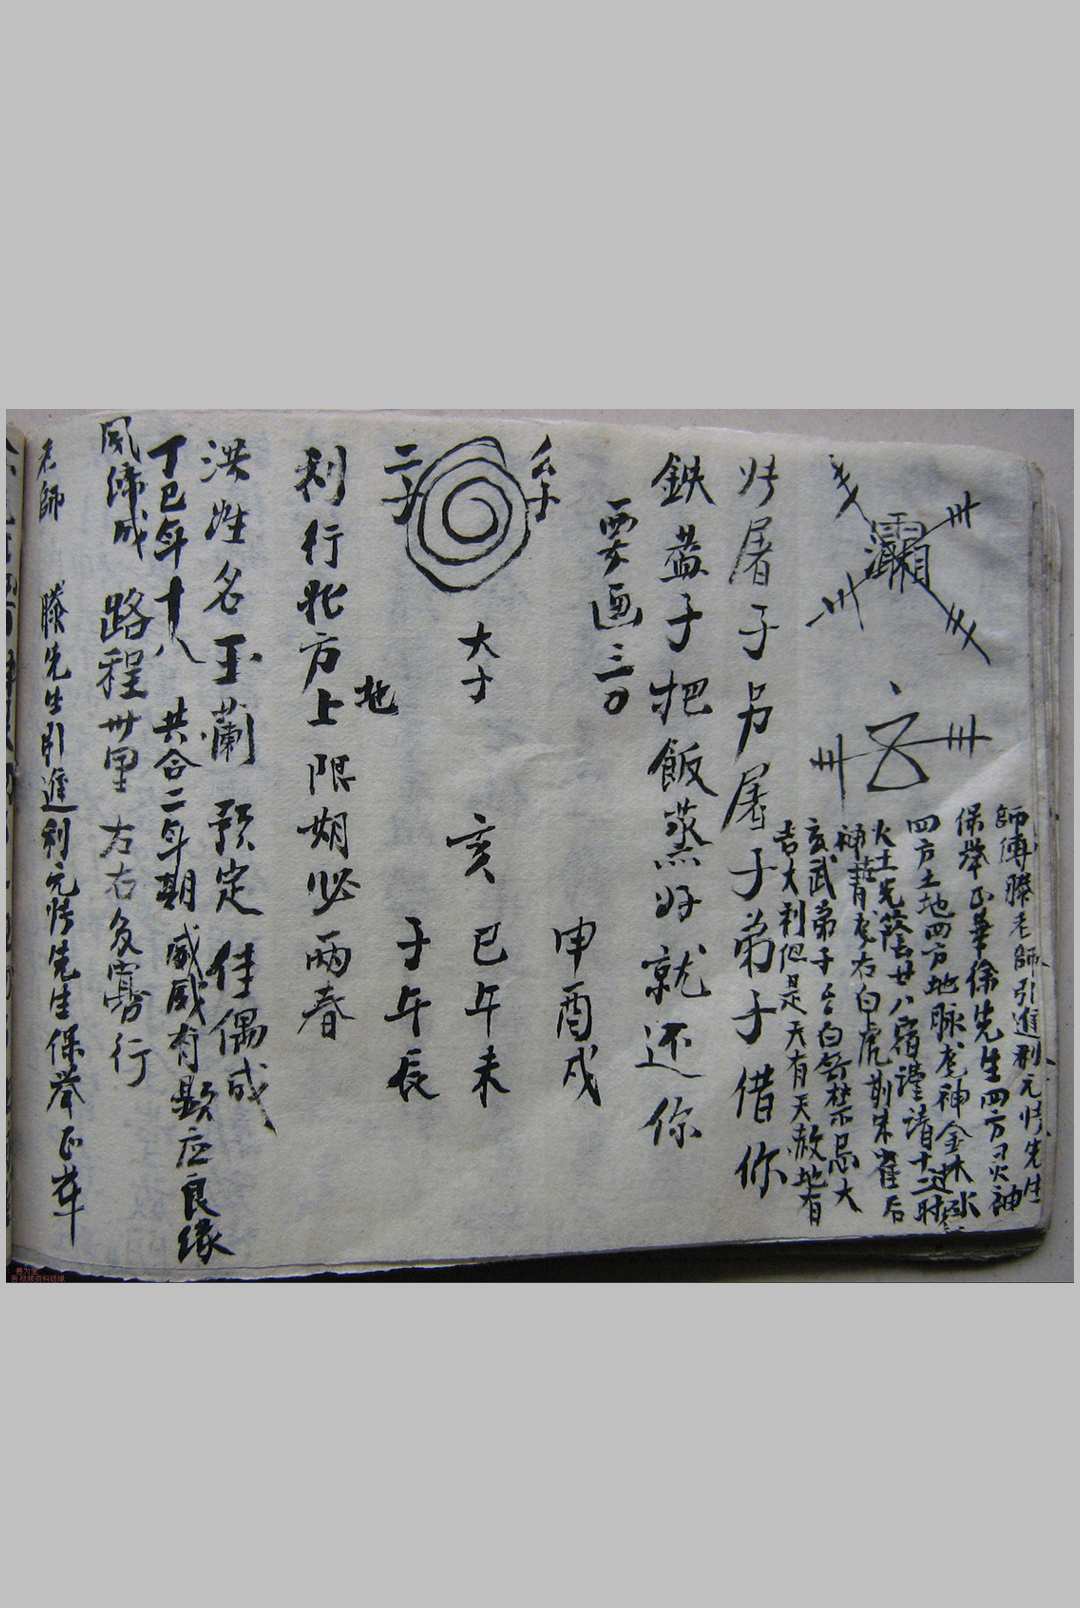 師傅滕老師引進利元情先生
保举正華徐先生四方灵神
四方土地四方地脉龙神金木水
火土先蔭廿八宿謹请十二时
神青龙右白虎前朱雀后
玄武弟子百禁忌大
吉大利但是天有天赦地有
屠子另屠子弟子借你
鉄盖子把飯蒸好就还你
要画三〇
申酉戌
大子
亥巳午未
二子
子午辰
利行北方上限期必兩春
地
洪姓名玉蘭 預定佳偶成
丁巳年十八 共合二年期 威威有顕应良缘
風缔成 路程卅里 左右及寡行
老師 滕先生引進利元情先生保举正華